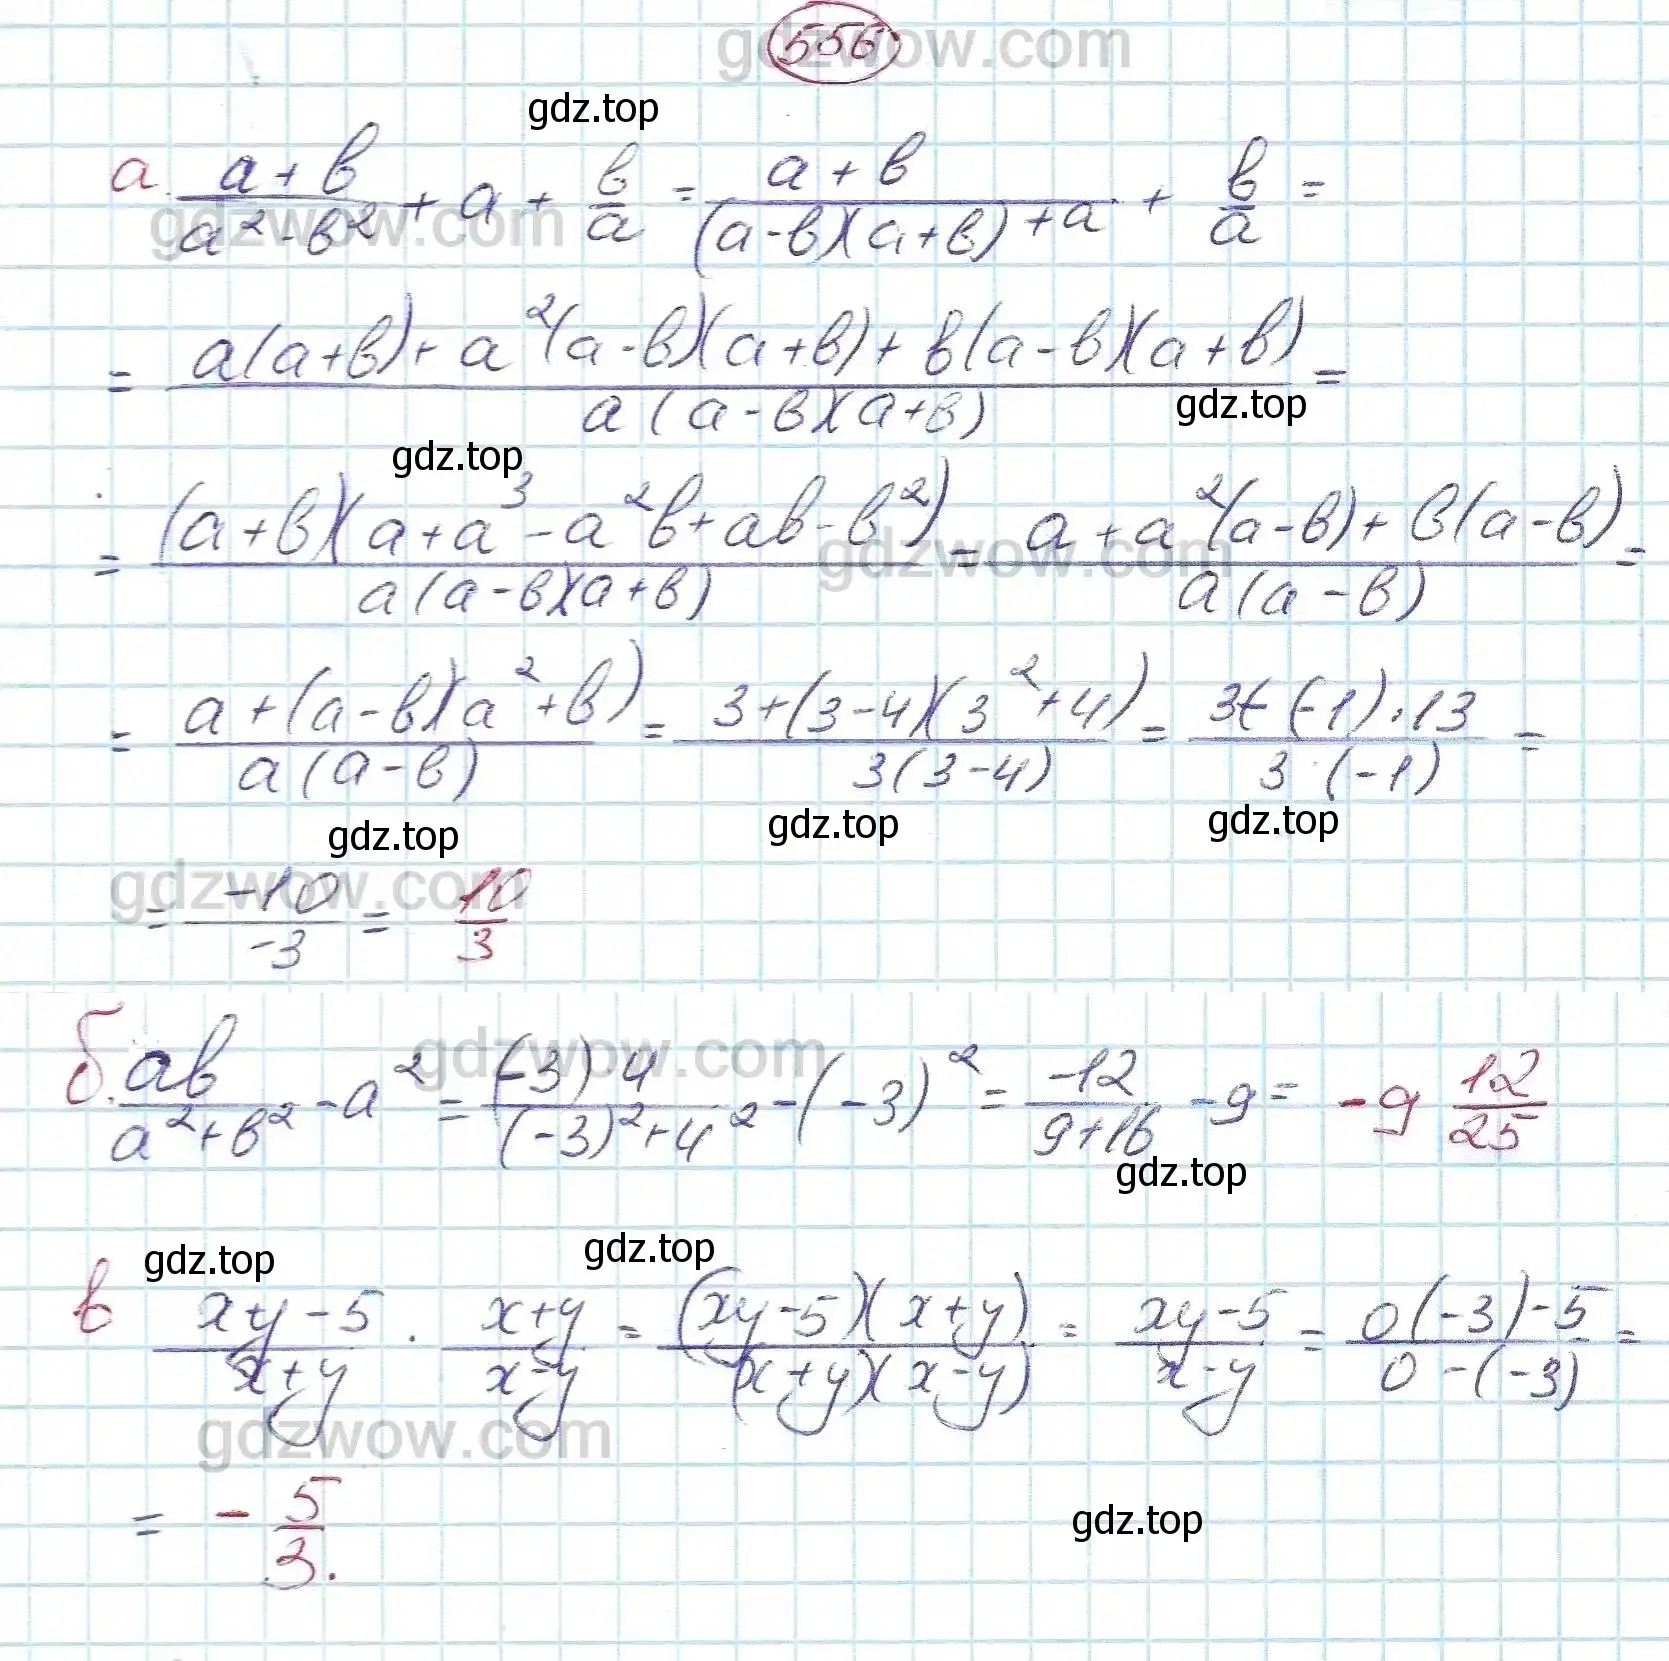 556
gdzwow.com
gdz.top
а. (a+b)/(a²-b²) + a + b/a = (a+b)/((a-b)(a+b)) + a + b/a =
gdzwow.com
= (a(a+b)+a²(a-b)(a+b)+b(a-b)(a+b))/(a(a-b)(a+b)) =
gdz.top
gdz.top
= ((a+b)(a+a³-a²b+ab-b²))/(a(a-b)(a+b)) = (a+a²(a-b)+b(a-b))/(a(a-b)) =
gdzwow.com
= (a+(a-b)(a²+b))/(a(a-b)) = (3+(3-4)(3²+4))/(3(3-4)) = (3+(-1)·13)/(3·(-1)) =
gdz.top gdz.top gdz.top
gdzwow.com
= -10/-3 = 10/3
б. ab/(a²+b²) - a² = ((-3)·4)/((-3)²+4²) - (-3)² = -12/(9+16) - 9 = -9 12/25
gdzwow.com
gdz.top
gdz.top gdz.top
в (xy-5)/(x+y) · (x+y)/(x-y) = ((xy-5)(x+y))/((x+y)(x-y)) = (xy-5)/(x-y) = (0(-3)-5)/(0-(-3)) =
gdzwow.com
= -5/3.
gdz.top